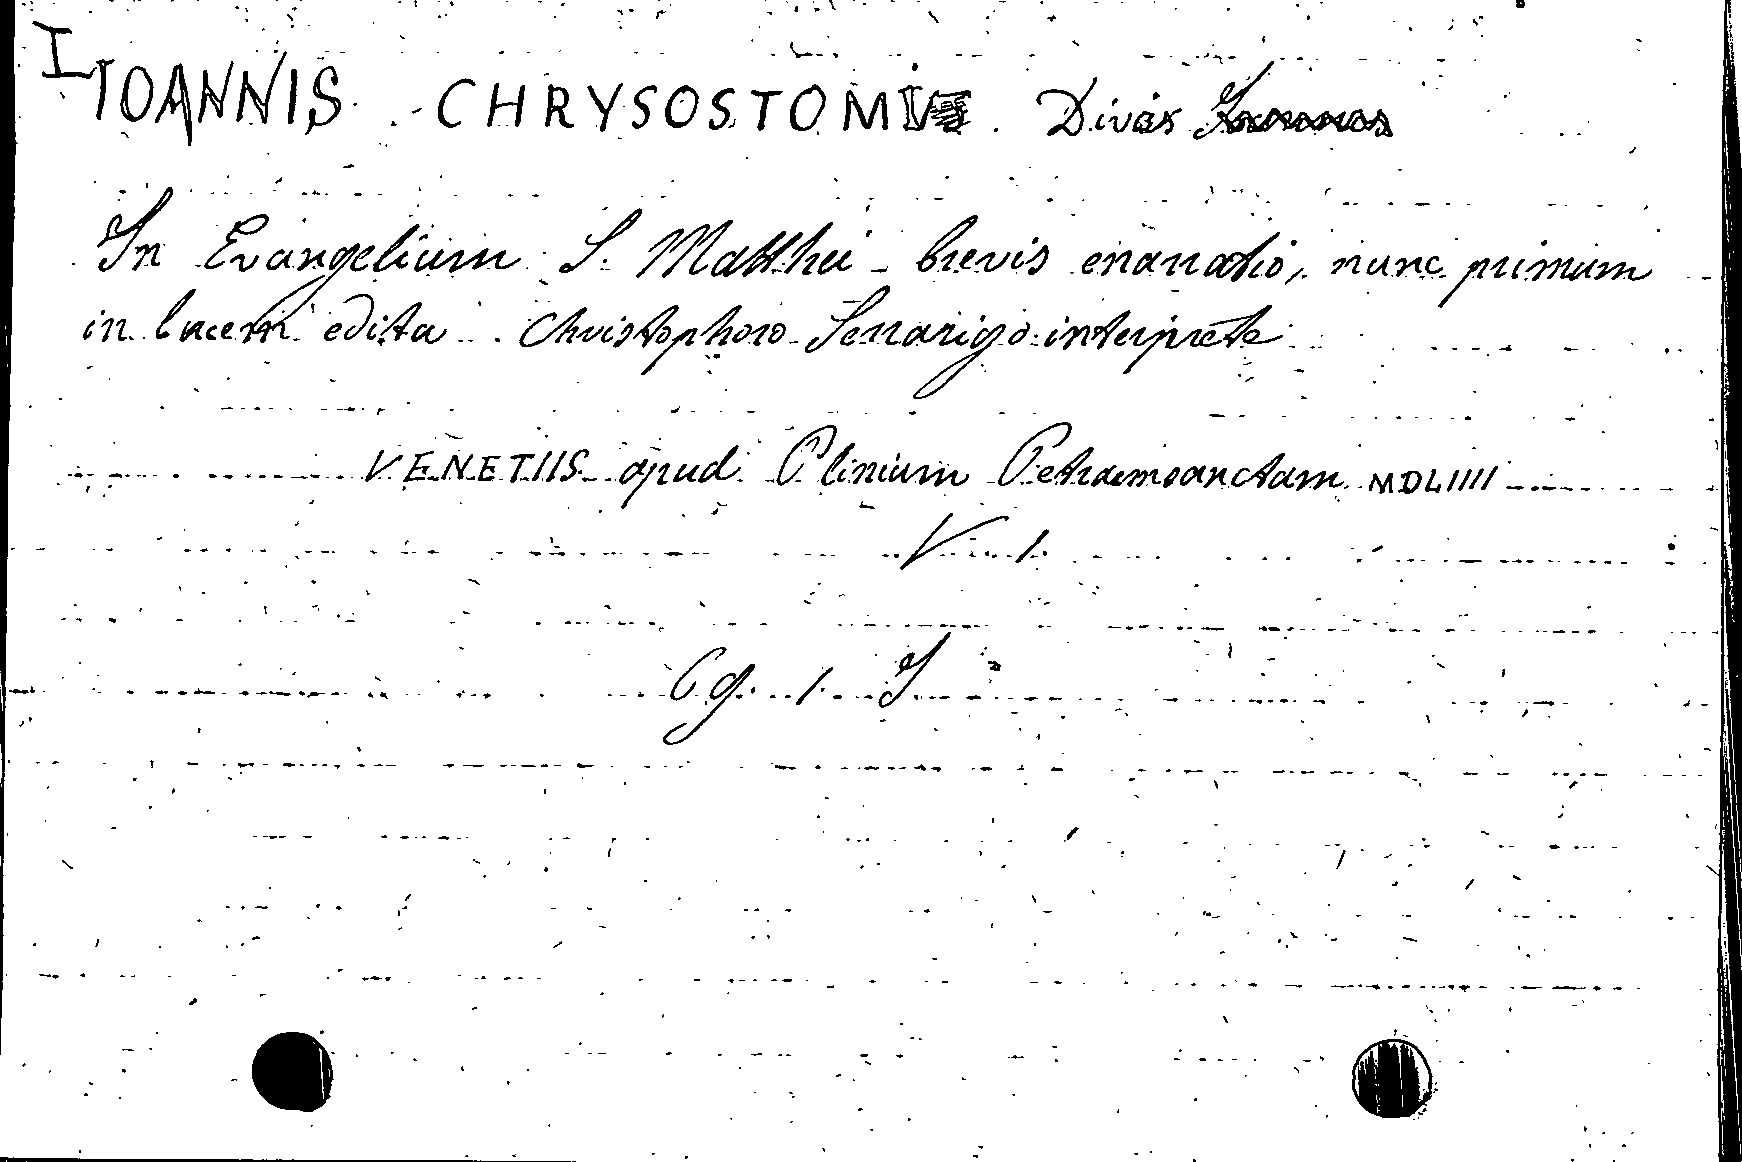 IOANNIS CHRYSOSTOMI. Divas
In Evangelium S. Matthei brevis enarratio, nunc primum
in lucem edita. Christophoro Serrarigo interprete
VENETIIS apud Plinium Petramsanctam MDLIIII